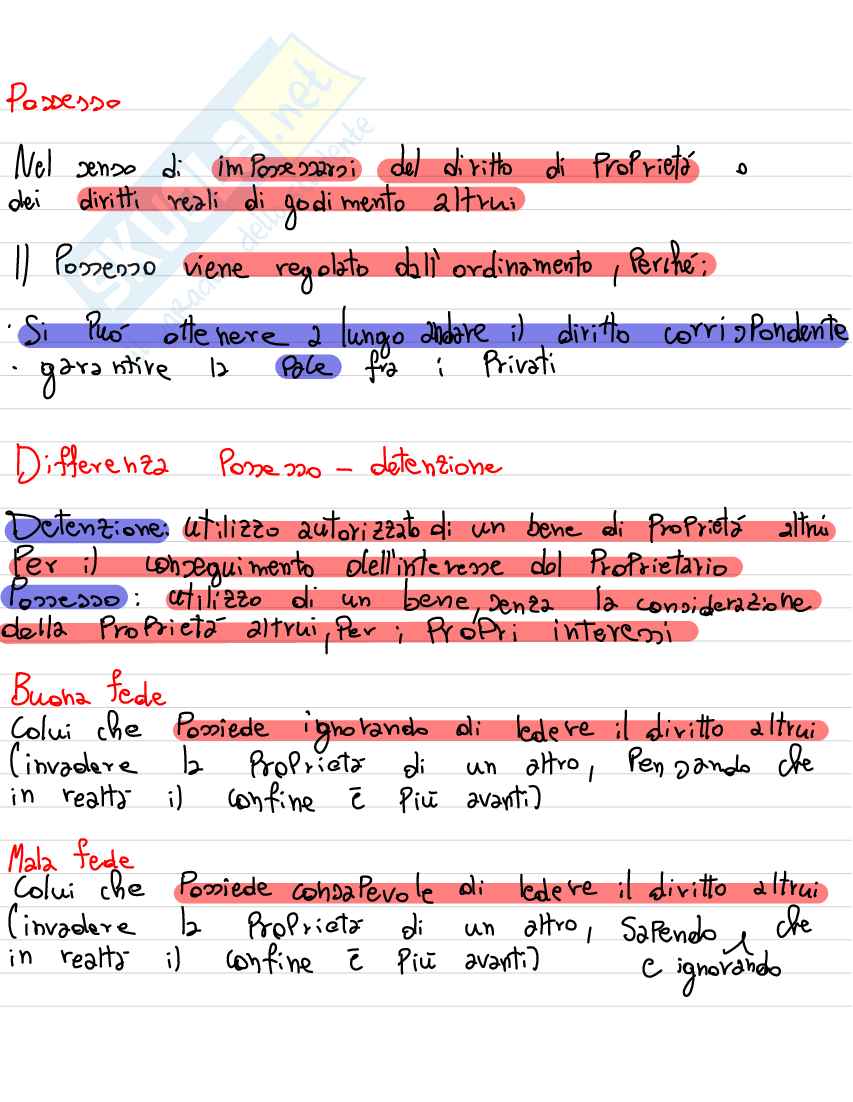 Possesso
Nel senso di impossessarsi del diritto di Proprietá o
dei diritti reali di godimento altrui
Il Possesso viene regolato dall'ordinamento, Perché:
· Si Puó ottenere a lungo andare il diritto corrispondente
· garantire la Pace fra i Privati
Differenza Possesso - detenzione
Detenzione: utilizzo autorizzato di un bene di Proprietá altrui
Per il conseguimento dell'interesse del Proprietario
Possesso: utilizzo di un bene, senza la considerazione
della Proprietá altrui, Per i Própri interessi
Buona fede
Colui che Possiede ignorando di ledere il diritto altrui
(invadere la Proprietá di un altro, Pensando che
in realtá il confine é Piú avanti)
Mala fede
Colui che Possiede consapevole di ledere il diritto altrui
(invadere la Proprietá di un altro, Sapendo, che
in realtá il confine é Piú avanti) e ignorando
SKUOLA.net